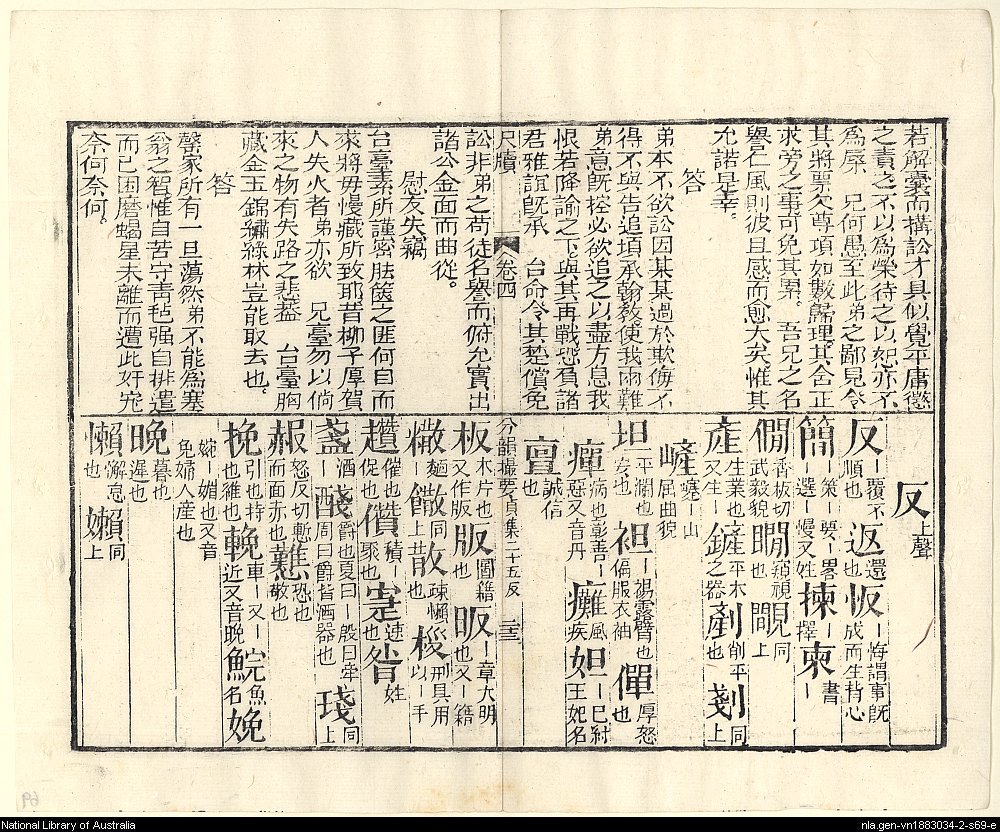 若解囊而構訟才具似覺平庸懲
之責之不以為榮待之以恕亦不
為辱 兄何愚至此弟之鄙見令
其將票欠尊項如數歸理其舍正
求旁之事可免其累 吾兄之名
譽仁風則彼且感而愈大矣惟其
允諾是幸。
答
弟本不欲訟因某某過於欺侮不
得不與告追項承翰教使我兩難
弟意既控必欲追之以盡方息我
恨若降諭之下與其再戰恐負諸
君雅誼既承 台命令其楚償免
尺牘 卷四
訟非弟之苛徒名譽而俯允實出
諸公金面而曲從。
慰友失竊
台臺素所謹密胠篋之匪何自而
來將毋慢藏所致耶昔柳子厚賀
人失火者弟亦欲 兄臺勿以倘
來之物有失路之悲葢 台臺胸
藏金玉錦繡綠林豈能取去也。
答
罄家所有一旦蕩然弟不能為塞
翁之智惟自苦守青毡强自排遣
而已困磨蝎星未離而遭此奸宄
奈何奈何。
反上聲
反丨覆不順也 返還也 恢丨悔謂事旣成而生背心
簡丨策丨要丨畧丨選丨慢又姓 揀丨擇 柬書丨
僩香板切武毅貌 瞯窺視也 覸同上
產生業也又生丨 鏟平木之器 剷削平也 剗同上
嵼㠝丨山屈曲貌
坦平瀾也安也 袒丨裼露臂也偏服衣袖 僤厚怒也
癉病也彰善丨惡又音丹 癱風丨疾 妲丨己紂王妃名
亶誠信也
分韻撮要貞集二十五反 三三
板木片也又作版 版圖籍也 昄丨章大明也又丨籍
䉈麵丨也 饊同上 散疎懶也昔丨 㮻刑具用以丨手
趲催也迭促也 儹積丨聚也 寁速也 昝姓
盞酒丨 醆爵也夏曰丨殷曰斝周曰爵皆酒器也 琖同上
赧怒反切慚而面赤也 戁恐也敬也
挽引也持也維也 輓車丨又丨近又音晚 鯇魚名 娩
㛯丨媚也又音免婦人産也
晚暮也遲也
懶懈怠也 嬾同上
National Library of Australia
nla.gen-vn1883034-2-s69-e